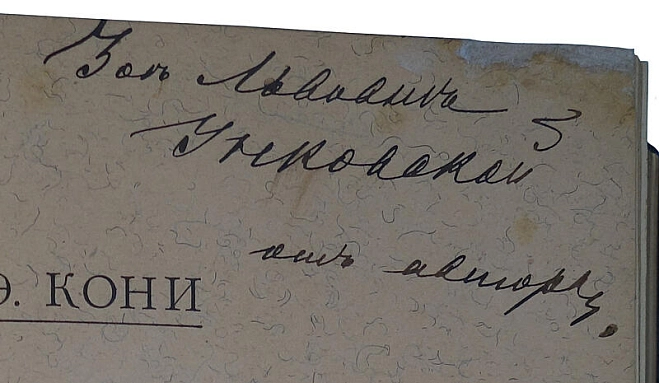 Зоѣ Львовнѣ
Унковской
отъ автора.
Ѳ. КОНИ